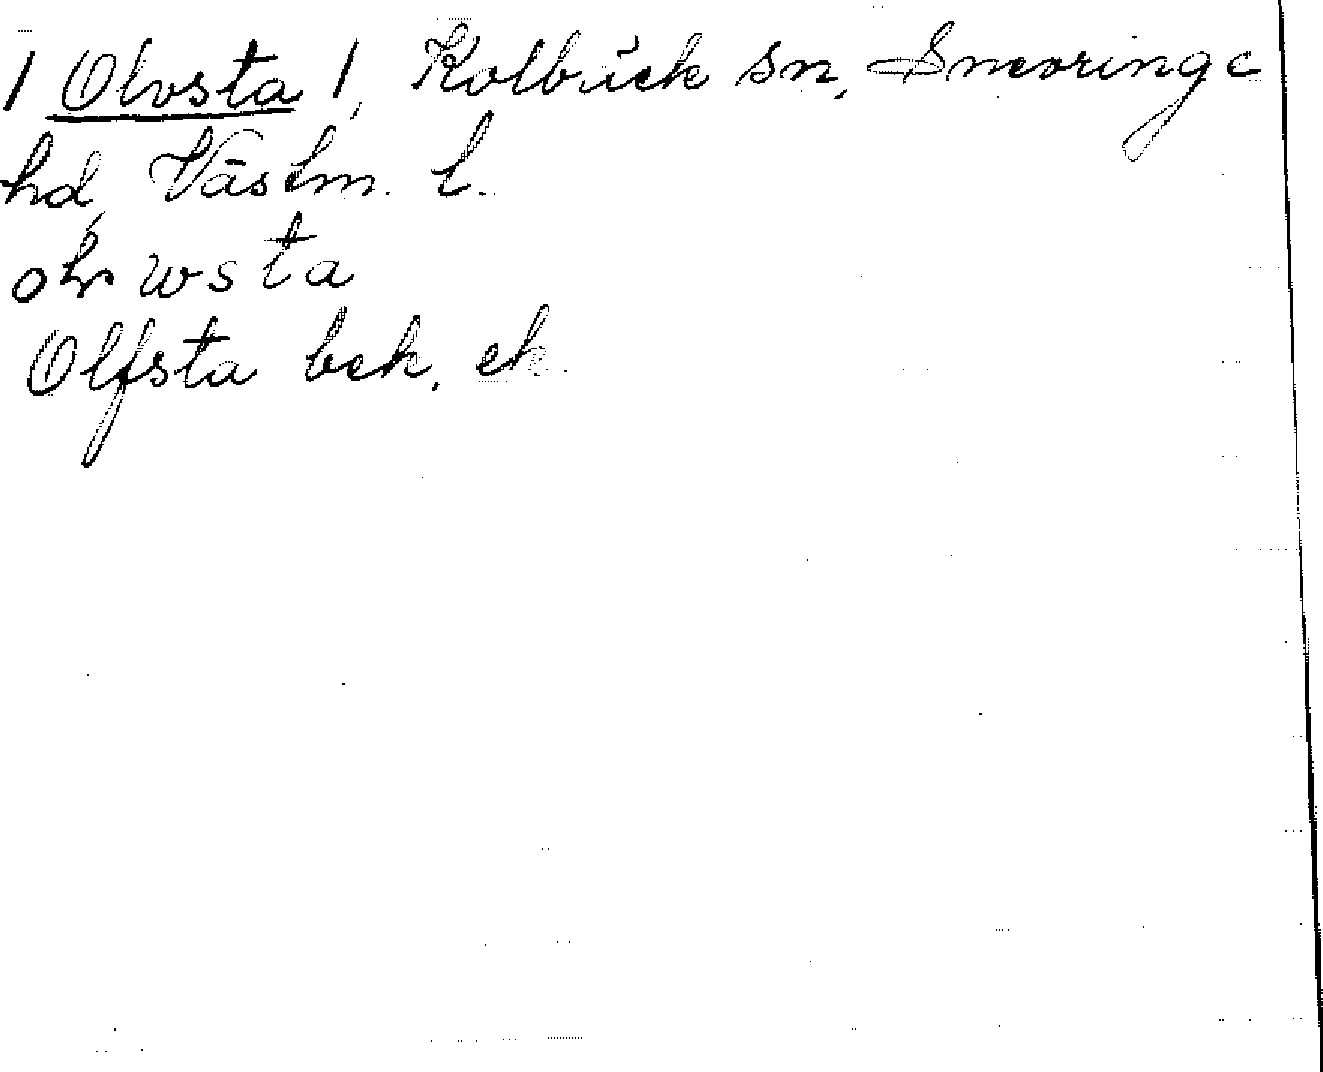 / Olvsta /, Kolbäck sn, Snevringe
hd, Västm. l.
Olfsta bek, ek.